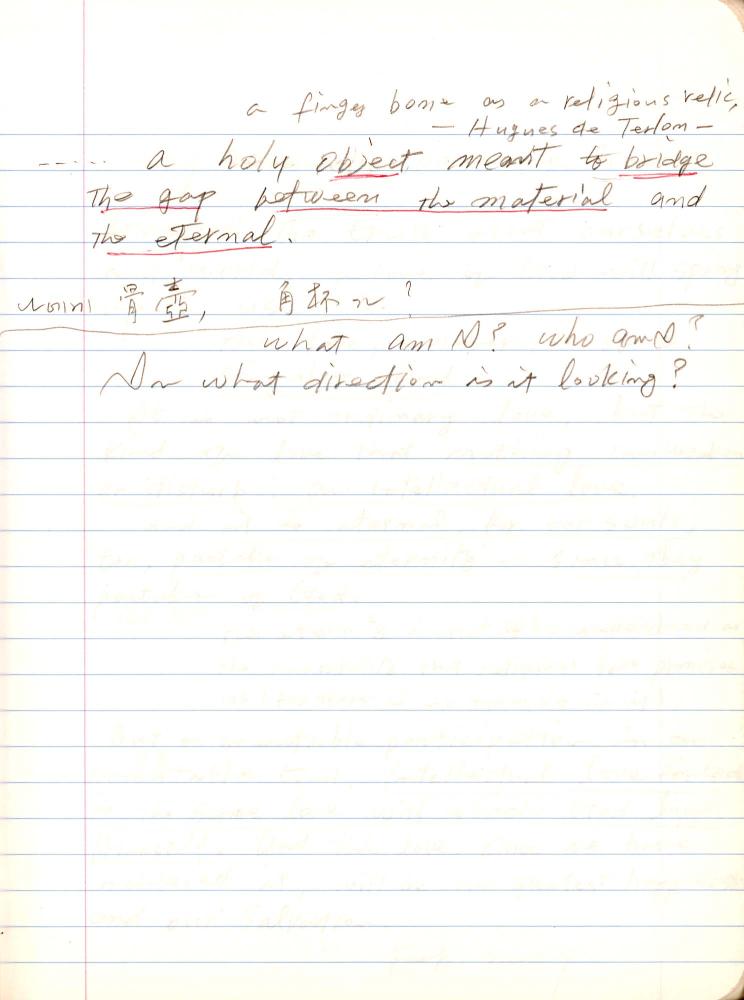 a finger bone as a religious relic,
— Hugues de Terlom —
------ a holy object meant to bridge
The gap between the material and
The eternal.
骨壺, 角杯 ?
what am I? who am I?
In what direction is it looking?